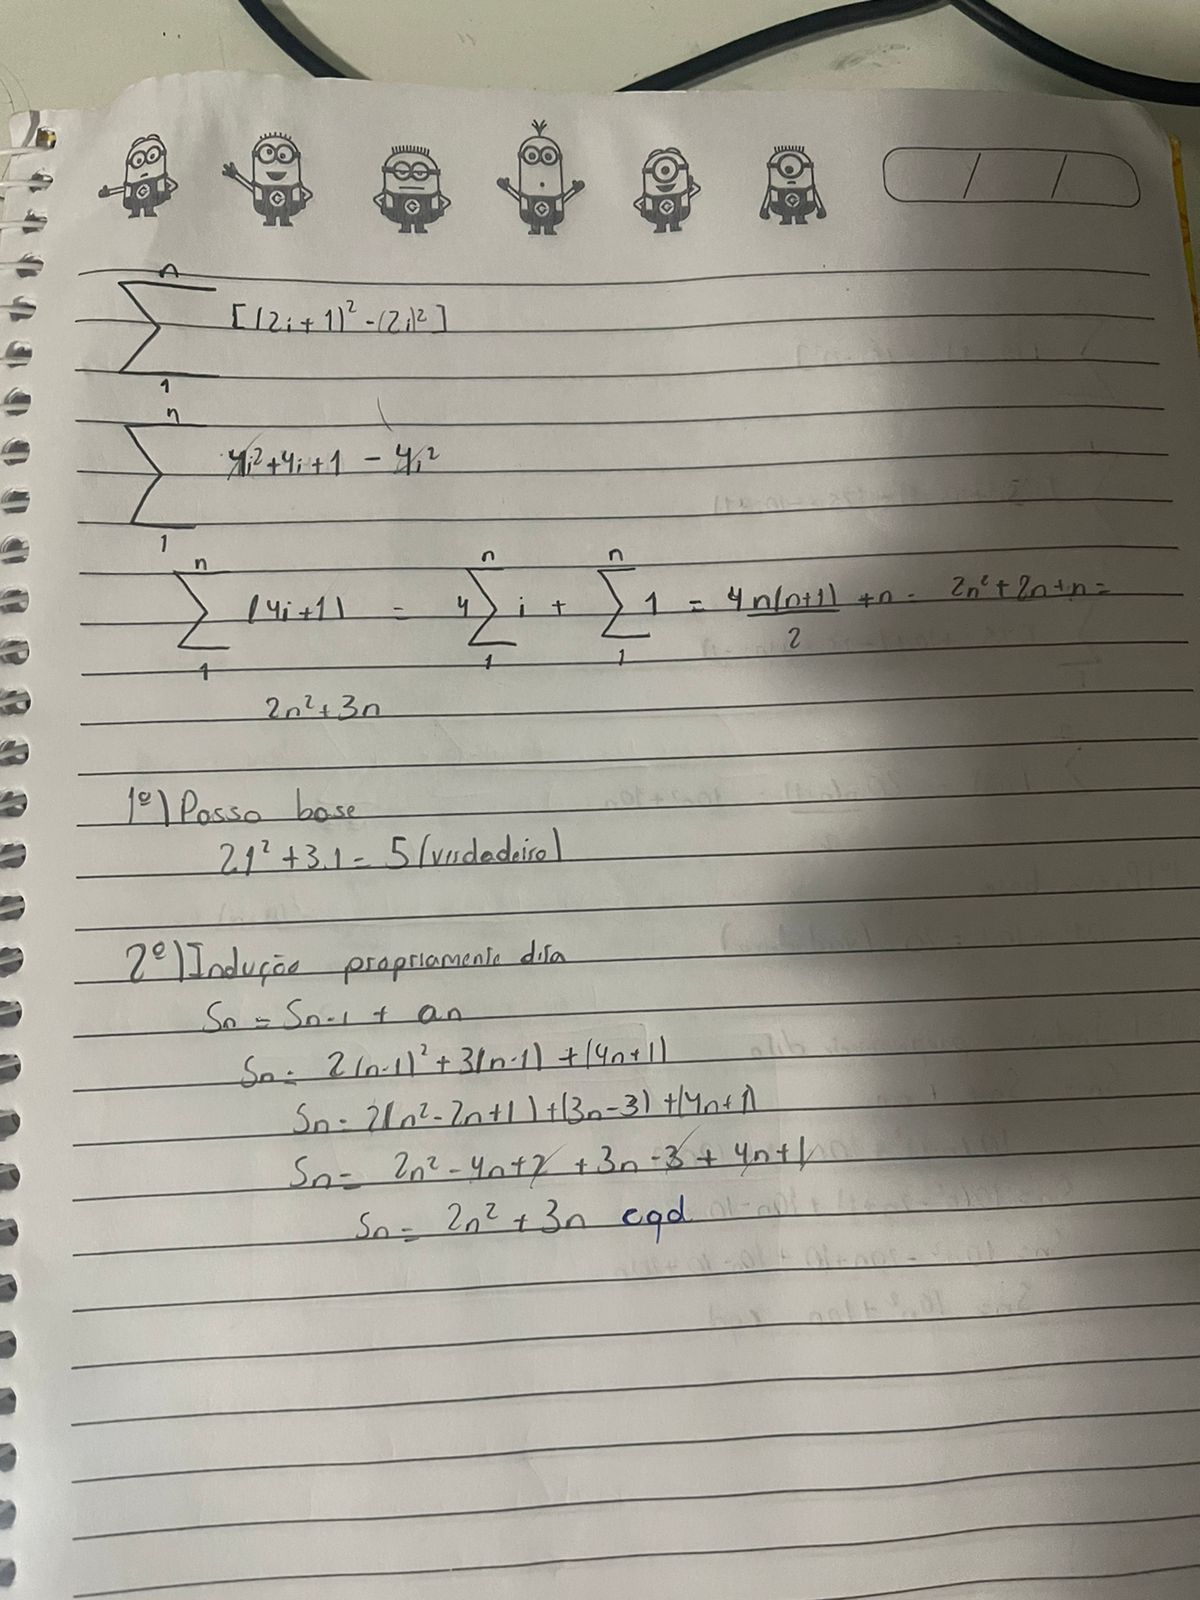 n
∑ [(2i+1)² - (2i)²]
1
n
∑ 4i² + 4i + 1 - 4i²
1
n n n
∑ (4i+1) = 4 ∑ i + ∑ 1 = 4 n(n+1)/2 + n = 2n² + 2n + n =
1 1 1
2n² + 3n
1º) Passo base
2.1² + 3.1 = 5 (verdadeiro)
2º) Indução propriamente dita
Sn = Sn-1 + an
Sn = 2(n-1)² + 3(n-1) + (4n+1)
Sn = 2(n² - 2n + 1) + (3n - 3) + (4n + 1)
Sn = 2n² - 4n + 2 + 3n - 3 + 4n + 1
Sn = 2n² + 3n cqd